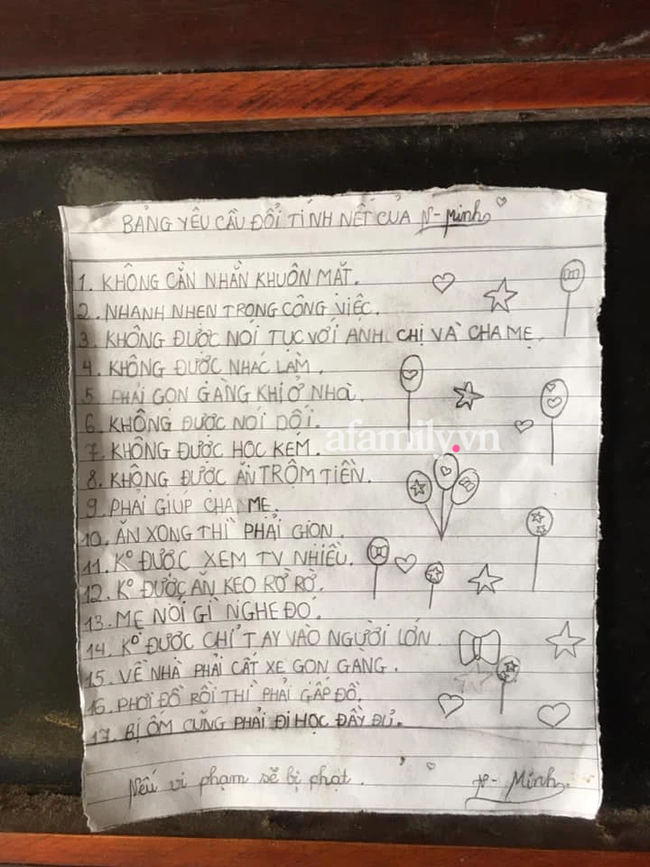 BẢNG YÊU CẦU ĐỔI TÍNH NẾT CỦA N-Minh
1. KHÔNG CẰN NHẰN KHUÔN MẶT.
2. NHANH NHEN TRONG CÔNG VIỆC.
3. KHÔNG ĐƯỢC NÓI TỤC VỚI ANH CHỊ VÀ CHA MẸ.
4. KHÔNG ĐƯỢC NHÁC LÀM.
5. PHẢI GỌN GÀNG KHI Ở NHÀ.
6. KHÔNG ĐƯỢC NÓI DỐI.
7. KHÔNG ĐƯỢC HỌC KÉM.
afamily.vn
8. KHÔNG ĐƯỢC ĂN TRỘM TIỀN.
9. PHẢI GIÚP CHA MẸ.
10. ĂN XONG THÌ PHẢI GIỌN.
11. K° ĐƯỢC XEM TV NHIỀU.
12. K° ĐƯỢC ĂN KẸO RỞ RỞ.
13. MẸ NÓI GÌ NGHE ĐÓ.
14. K° ĐƯỢC CHỈ TAY VÀO NGƯỜI LỚN
15. VỀ NHÀ PHẢI CẤT XE GỌN GÀNG.
16. PHƠI ĐỒ RỒI THÌ PHẢI GẤP ĐỒ.
17. BỊ ỐM CŨNG PHẢI ĐI HỌC ĐẦY ĐỦ.
Nếu vi phạm sẽ bị phạt. N-Minh